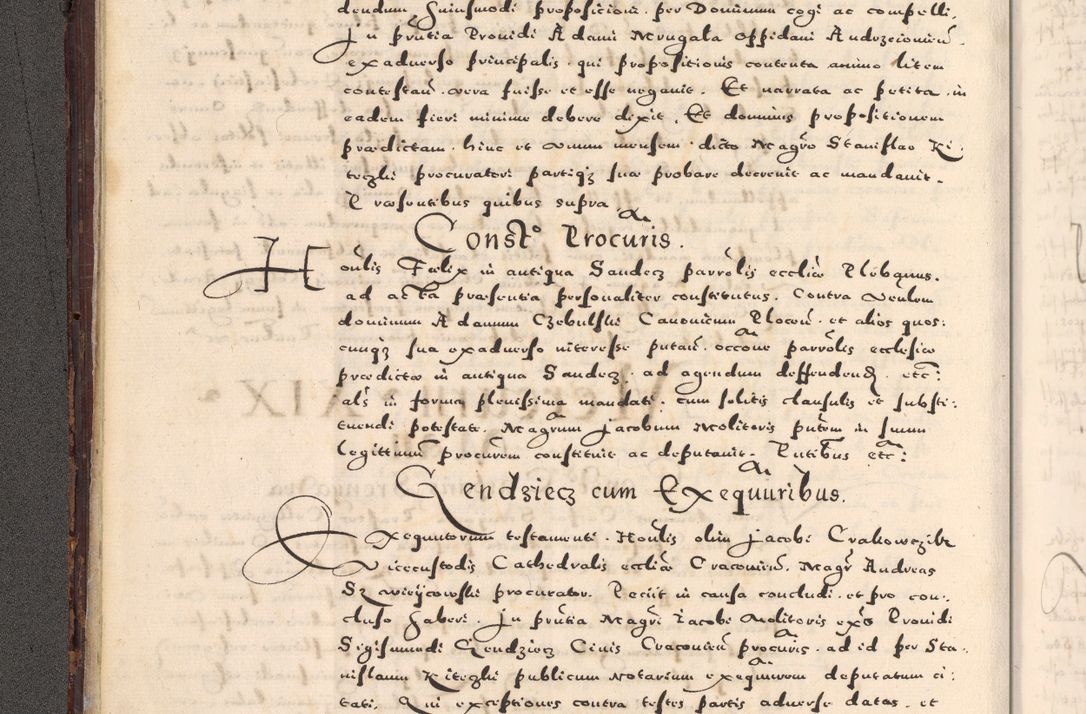 dendum huiusmodi propositioni per Dominum cogi ac compelli.
In pñtia Prouidi Adami Mrugala Oppidani Andrzeiouien.
exaduerso principalis qui propositionis contenta animo litem
contestan. vera fuisse et esse negauit. Et narrata ac petita in
eadem fieri minime debere dixit. Et dominus propositionem
prædictam hinc et unum mensem dicto Magro Stanislao Ki-
teczki procuratori partiqz suæ probare decreuit ac mandauit.
Præsentibus quibus supra
Constº Procuris.
Honlis Fælix in antiqua Sandecz parrolis eccliæ Plebanus
ad acta præsentia personaliter constitutus. Contra Venlem
dominum Adamum Czebulski Canonicum Plocen. et alios quos:
cunqz sua exaduerso interesse putan. occone parrolis ecclesiæ
prædictæ in antiqua Sandecz. ad agendum deffendend. etc:
als in forma plenissima mandati. cum solitis clausulis et substi:
tuendi potestate. Magrum Jacobum Molitoris pntem in suum
legittimum procurem constituit ac deputauit. Pntibus etc:
Gendziecz cum Exequuribus.
Exequutorum testamenti. Honlis olim Jacobi Crakowczik
Vicecustodis Cathedralis eccliæ Cracouien. Magr Andreas
procurator. Peciit in causa concludi. et pro con:
cluso haberi. In pñtia Magri Jacobi Molitoris exºs Prouidi
Sigismundi Gendziecz Ciuis Cracouien procuris. ad id per Sta:
nislaum Kiteczki publicum Notarium exequurem deputatum ci:
tati. Qui exceptiones contra testes partis aduersæ datas. et